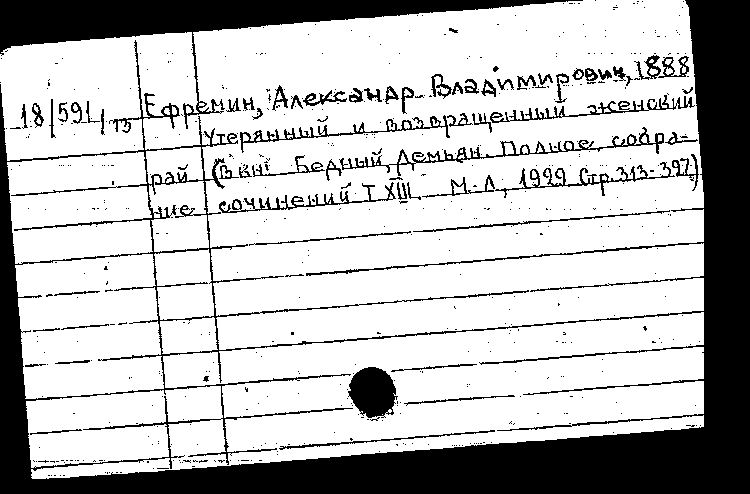 18/591/13 Ефремин, Александр Владимирович, 1888
Утерянный и возвращенный женский
рай (В кн: Бедный, Демьян. Полное собра-
ние сочинений Т XIII М.-Л, 1929 Стр. 313-397)